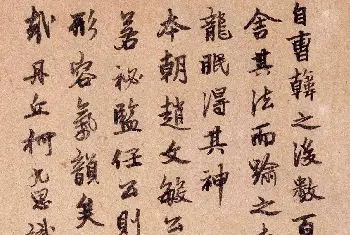 自曹韓之後數百
舍其法而踰之者
龍眠得其神
本朝趙文敏公
若祕監任公則
形容氣韻矣
丹丘柯九思識